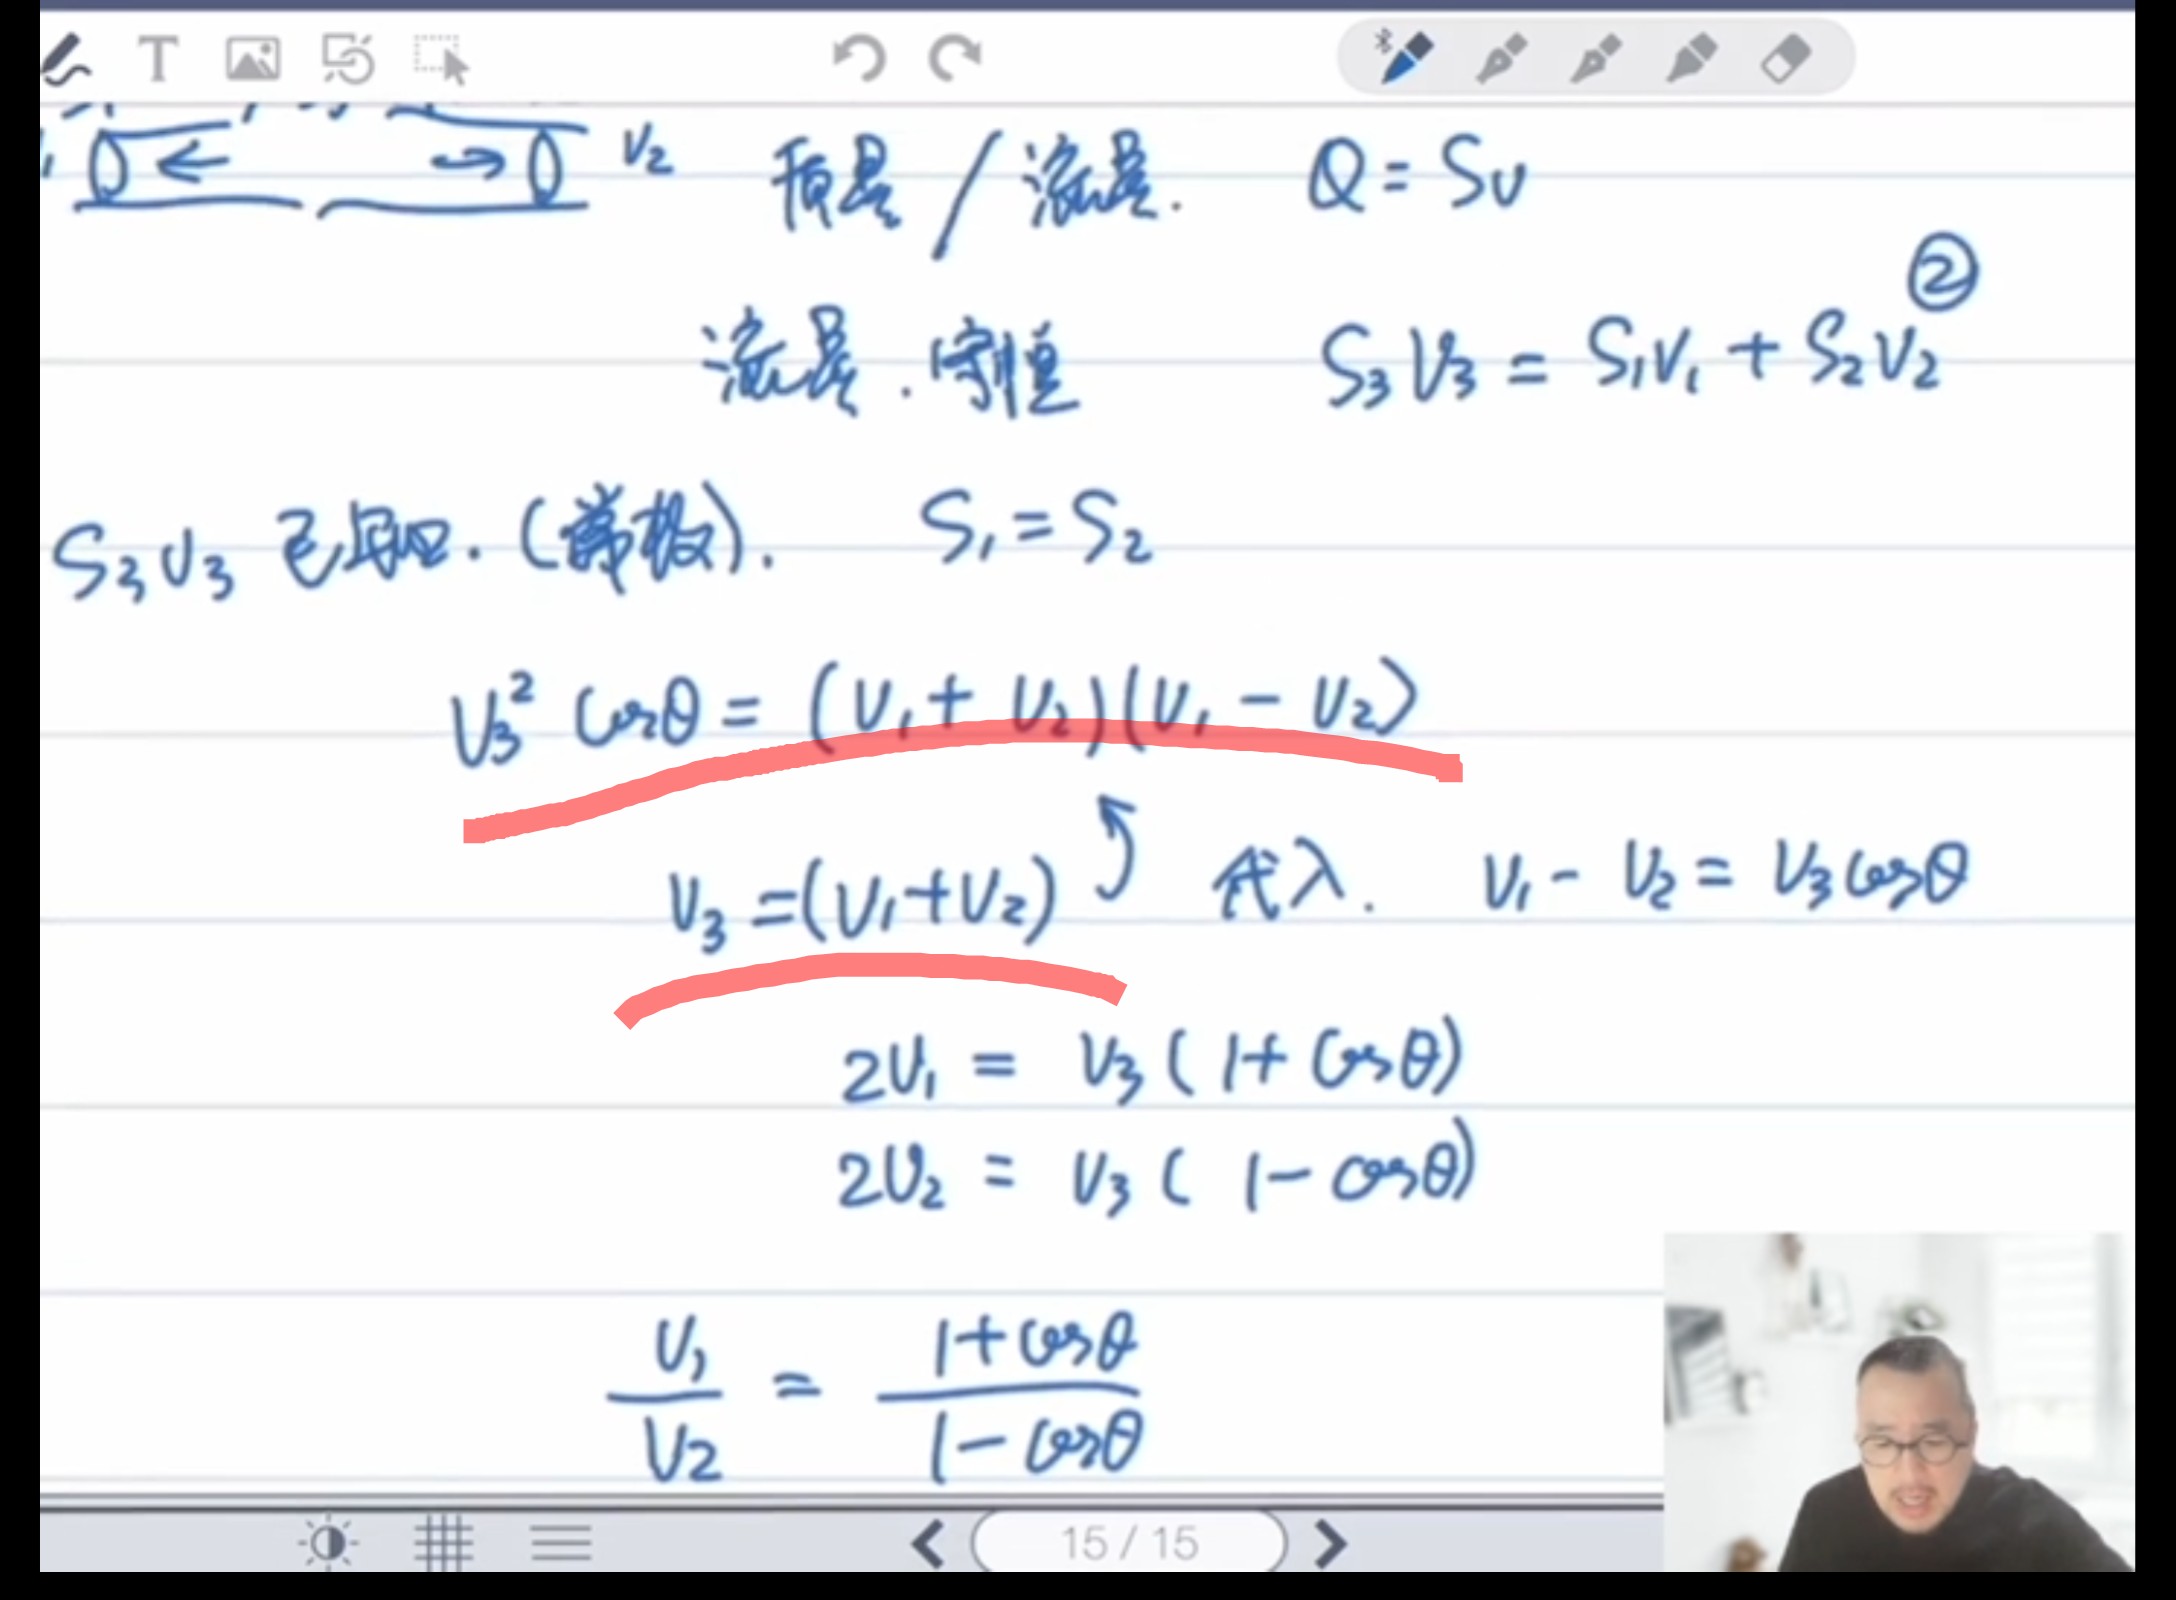 T
V₂ 质量/流量. Q = Sv
②
流量.守恒 S₃V₃ = S₁V₁ + S₂V₂
S₃V₃ 已知.(常数). S₁ = S₂
V₃² cosθ = (V₁ + V₂)(V₁ - V₂)
V₃ =(V₁+V₂) 代入. V₁ - V₂ = V₃cosθ
2V₁ = V₃(1+cosθ)
2V₂ = V₃(1-cosθ)
V₁/V₂ = (1+cosθ)/(1-cosθ)
15/15